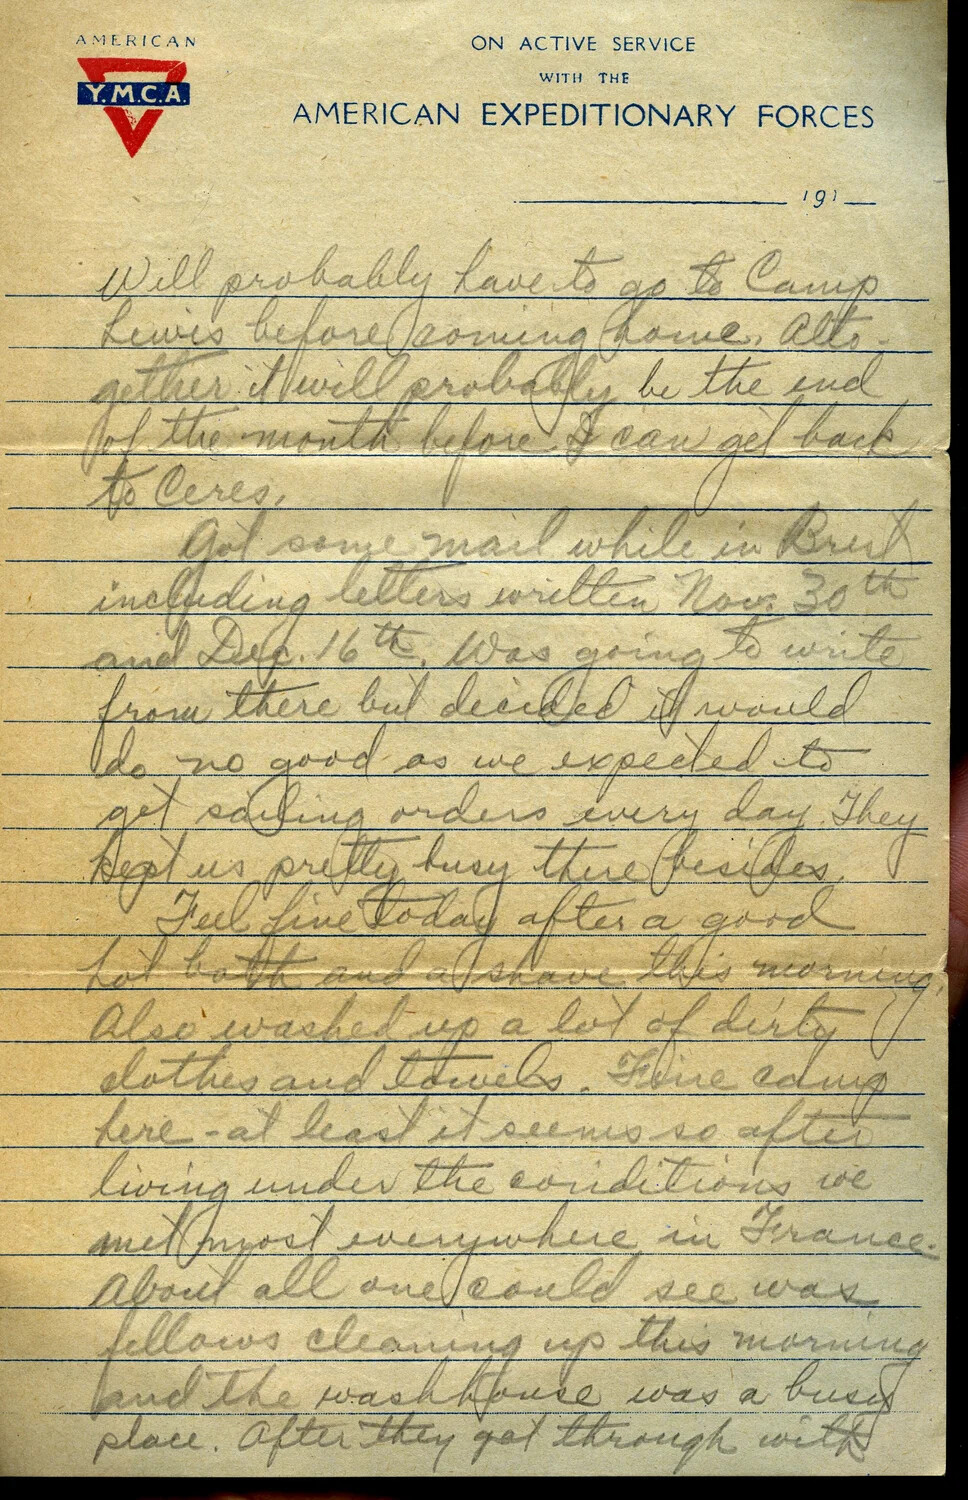 AMERICAN
Y.M.C.A.
ON ACTIVE SERVICE
WITH THE
AMERICAN EXPEDITIONARY FORCES
191
Will probably have to go to Camp
Lewis before coming home. Alto-
gether it will probably be the end
of the month before I can get back
to Ceres.
Got some mail while in Brest
including letters written Nov. 30th
and Dec. 16th. Was going to write
from there but decided it would
do no good as we expected to
get sailing orders every day. They
kept us pretty busy there besides.
Feel fine today after a good
hot bath and a shave this morning.
Also washed up a lot of dirty
clothes and towels. Fine camp
here - at least it seems so after
living under the conditions we
met most everywhere in France.
About all one could see was
fellows cleaning up this morning
and the washhouse was a busy
place. After they got through with